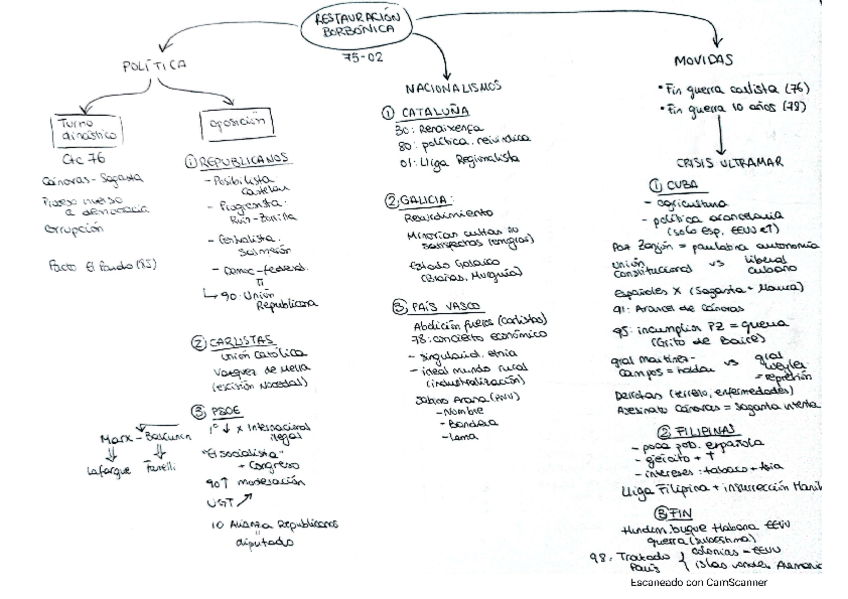 RESTAURACIÓN
BORBÓNICA
75-02
POLÍTICA
Turno
dinástico
Ctc 76
Cánovas - Sagasta
Proceso inverso
a democracia
corrupción
Pacto El Pardo (85)
oposición
① REPUBLICANOS
- Posibilista
Castelar
- Progresista
Ruiz-Zorrilla
- Centralista
Salmerón
- Democ-federal
Π
↳ 90: Unión
Republicana
② CARLISTAS
Unión católica
Vázquez de Mella
(escisión Nocedal)
③ PSOE
1º ↓ x Internacional
ilegal
"El socialista"
+ Congreso
90 ↑ moderación
UGT ↗
10 Alianza Republicanos
diputado
Marx - Bakunin
Lafargue Fanelli
NACIONALISMOS
① CATALUÑA
30: Renaixença
80: política, reivindica
01: Lliga Regionalista
② GALICIA:
Rexurdimiento
Minorías cultas in
satisfechas (emigras)
Estado Galaico
(Brañas, Murguía)
③ PAÍS VASCO
Abolición fueros (carlistas)
78: concierto económico
- singularid. etnia
- ideal mundo rural
(industrialización)
Sabino Arana (PNV)
- Nombre
- Bandera
- Lema
MOVIDAS
• Fin guerra carlista (76)
• Fin guerra 10 años (78)
CRISIS ULTRAMAR
① CUBA
- agricultura
- política arancelaria
(solo Esp, EEUU x)
Paz Zanjón = palabra autonomía
Unión vs liberal
constitucional cubano
españoles X (Sagasta + Maura)
91: Arancel de Cánovas
95: incumplir PZ = guerra
(Grito de Baire)
gral Martínez- vs gral
Campos = hablar Weyler
= represión
Derrotas (terreno, enfermedades)
Asesinato Cánovas = Sagasta intenta
② FILIPINAS
- poca pob. española
- ejército + †
- intereses: tabaco + Asia
Lliga Filipina + insurrección Manil
③ FIN
Hunden buque Habana EEUU
guerra (subestima)
98: Tratado { colonias = EEUU
París { islas vender Alemania
Escaneado con CamScanner